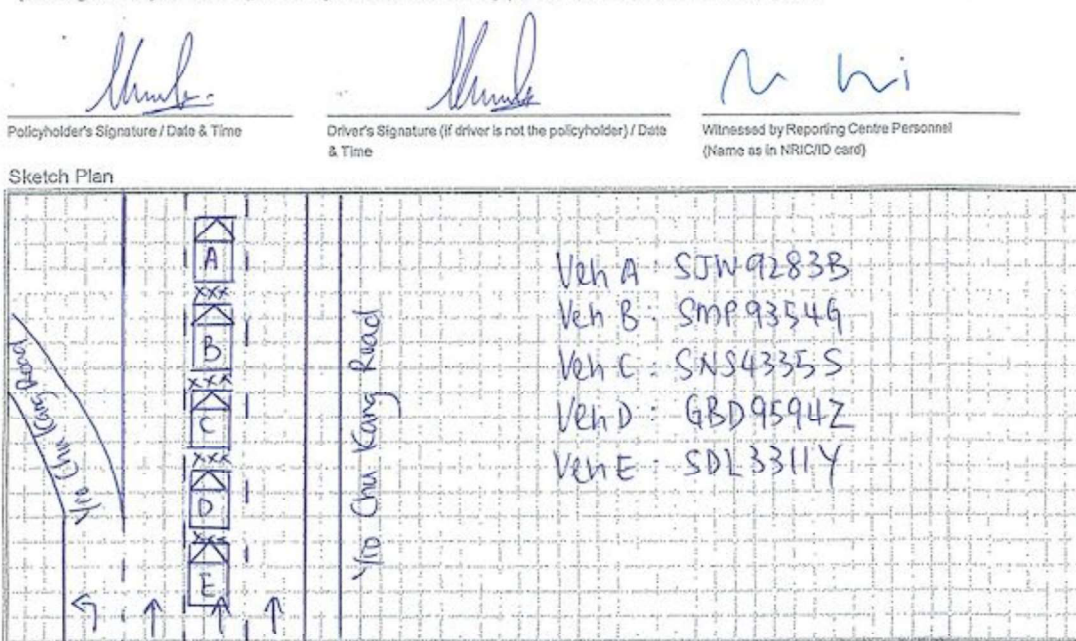 Policyholder's Signature / Date & Time
Driver's Signature (if driver is not the policyholder) / Date
& Time
Witnessed by Reporting Centre Personnel
(Name as in NRIC/ID card)
Sketch Plan
A
xxx
B
xxx
C
xxx
D
xxx
E
Yio Chu Kang Road
Yio Chu Kang Road
Veh A : SJW9283B
Veh B : SMP9354G
Veh C : SNS4335S
Veh D : GBD9594Z
Veh E : SDL3311Y